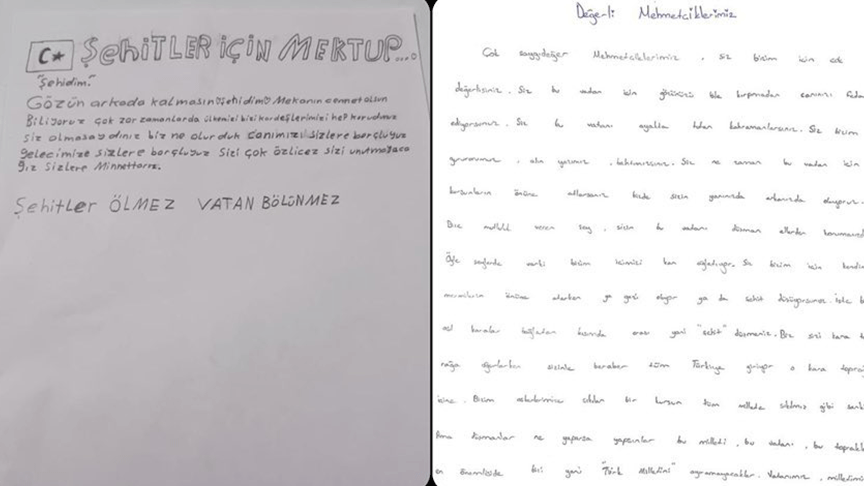 C★ ŞEHİTLER İÇİN MEKTUP...
"Şehidim."
Gözün arkada kalmasın şehidim Mekanın cennet olsun
Biliyoruz çok zor zamanlarda ülkemizi bizi kardeşlerimizi hep korudunuz
siz olmasaydınız biz ne olurduk canımızı sizlere borçluyuz
gelecimize sizlere borçluyuz Sizi çok özlicez sizi unutmayaca
ğız Sizlere Minnettarız.
Şehitler ÖLMEZ VATAN BÖLÜNMEZ
Değerli Mehmetciklerimiz
Çok saygıdeğer Mehmetciklerimiz, siz bizim için çok
değerlisiniz. Siz bu vatan için gözünüzü bile kırpmadan canınızı feda
ediyorsunuz. Siz bu vatanı ayakta tutan kahramanlarsınız. Siz bizim
gururumuz, alın yazımız, Siz ne zaman bu vatan için
kurşunların önüne atlarsanız bizde sizin yanınızda arkanızda oluyoruz.
Bize veren şey, sizin bu vatanı düşman ellerden
Öyle şeylerde varki bizim içimizi kan ağlatıyor. Siz bizim için
önüne atarken ya gazi oluyor ya da şehit düşüyorsunuz. İşte
asıl kısımda orası yani "şehit" düşmeniz. Biz sizi kara
rağa sizinle beraber tüm Türkiye giriyor o kara
içine. Bizim askerlerimize sıkılan bir kurşun tüm millete sıkılmış gibi
Ama düşmanlar ne yaparsa yapsınlar bu milleti, bu vatanı, bu
en önemlisi de bizi yani "Türk Milletini" Vatanımız,